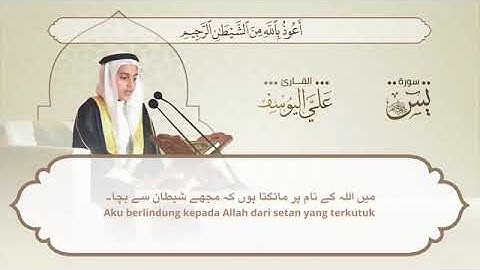 أَعُوذُ بِٱللَّهِ مِنَ ٱلشَّيْطَٰنِ ٱلرَّجِيمِ
سورة
يس
القارئ
علي اليوسف
میں اللہ کے نام پر مانگتا ہوں کہ مجھے شیطان سے بچا۔
Aku berlindung kepada Allah dari setan yang terkutuk